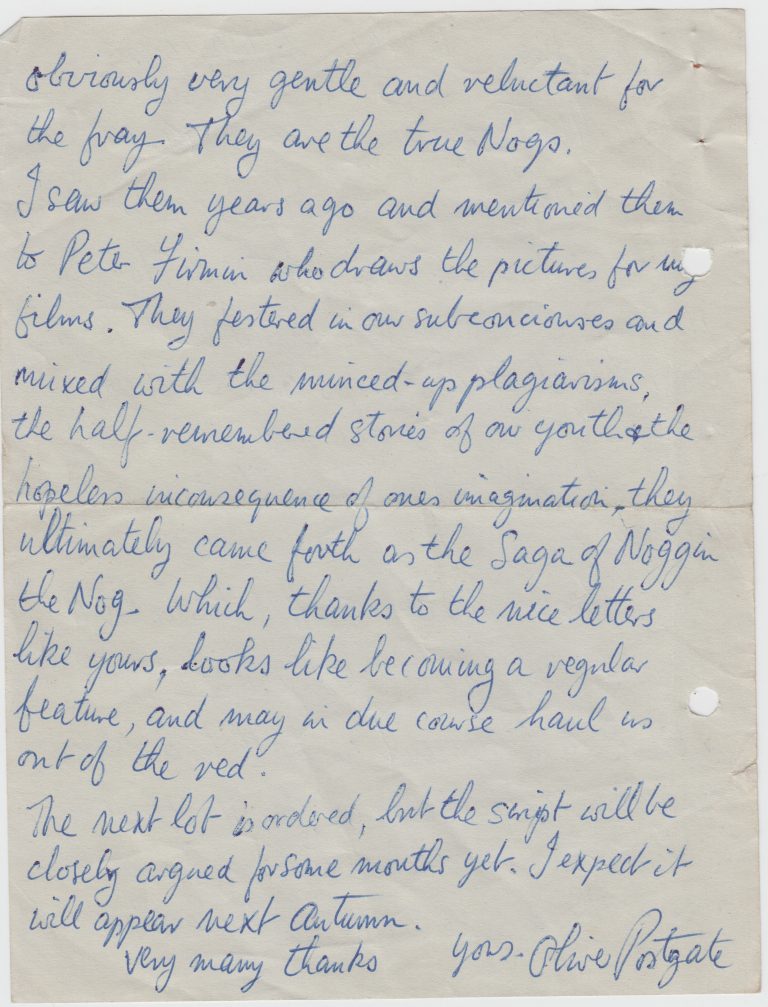 obviously very gentle and reluctant for
the fray. They are the true Nogs.
I saw them years ago and mentioned them
to Peter Firmin who draws the pictures for my
films. They festered in our subconciouses and
mixed with the minced-up plagiarisms,
the half-remembered stories of our youth & the
hopeless inconsequence of ones imagination, they
ultimately came forth as the Saga of Noggin
the Nog. Which, thanks to the nice letters
like yours, looks like becoming a regular
feature, and may in due course haul us
out of the red.
The next lot is ordered, but the script will be
closely argued for some months yet. I expect it
will appear next Autumn.
Very many thanks yours. Oliver Postgate